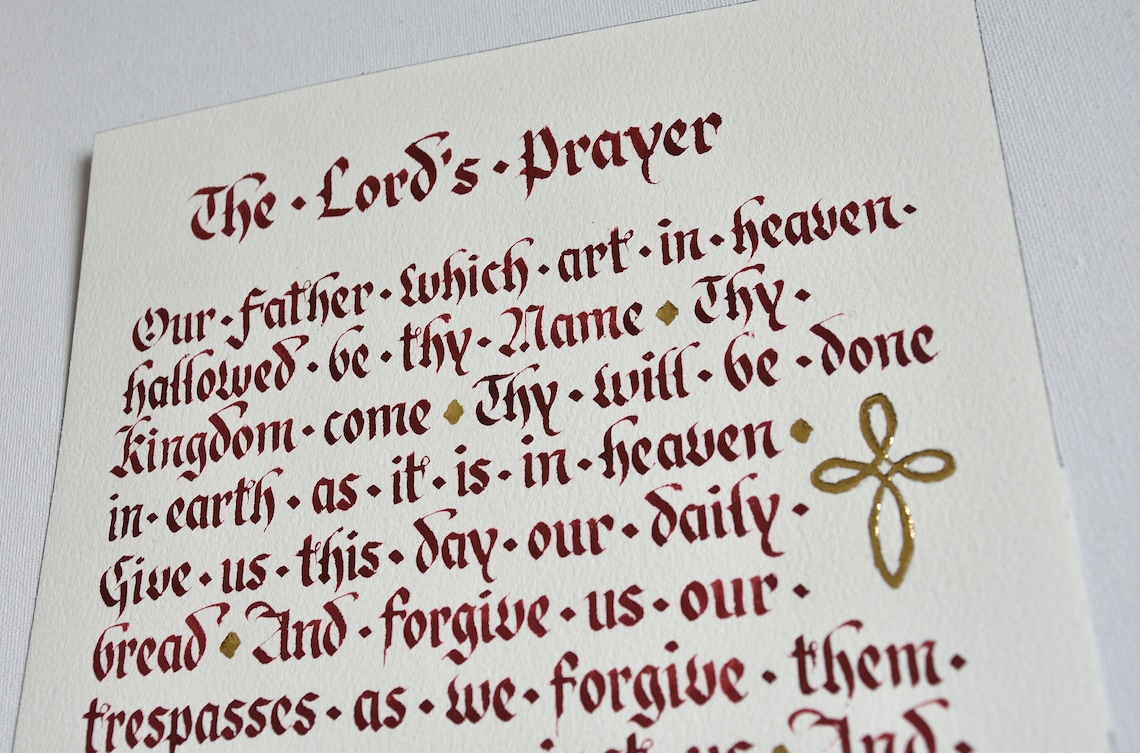 The · Lord's · Prayer
Our · Father · which · art · in · heaven ·
hallowed · be · thy · Name ◆ Thy ·
kingdom · come ◆ Thy · will · be · done
in · earth · as · it · is · in · heaven ◆
Give · us · this · day · our · daily ·
bread ◆ And · forgive · us · our ·
trespasses · as · we · forgive · them ·
us ◆ And ·